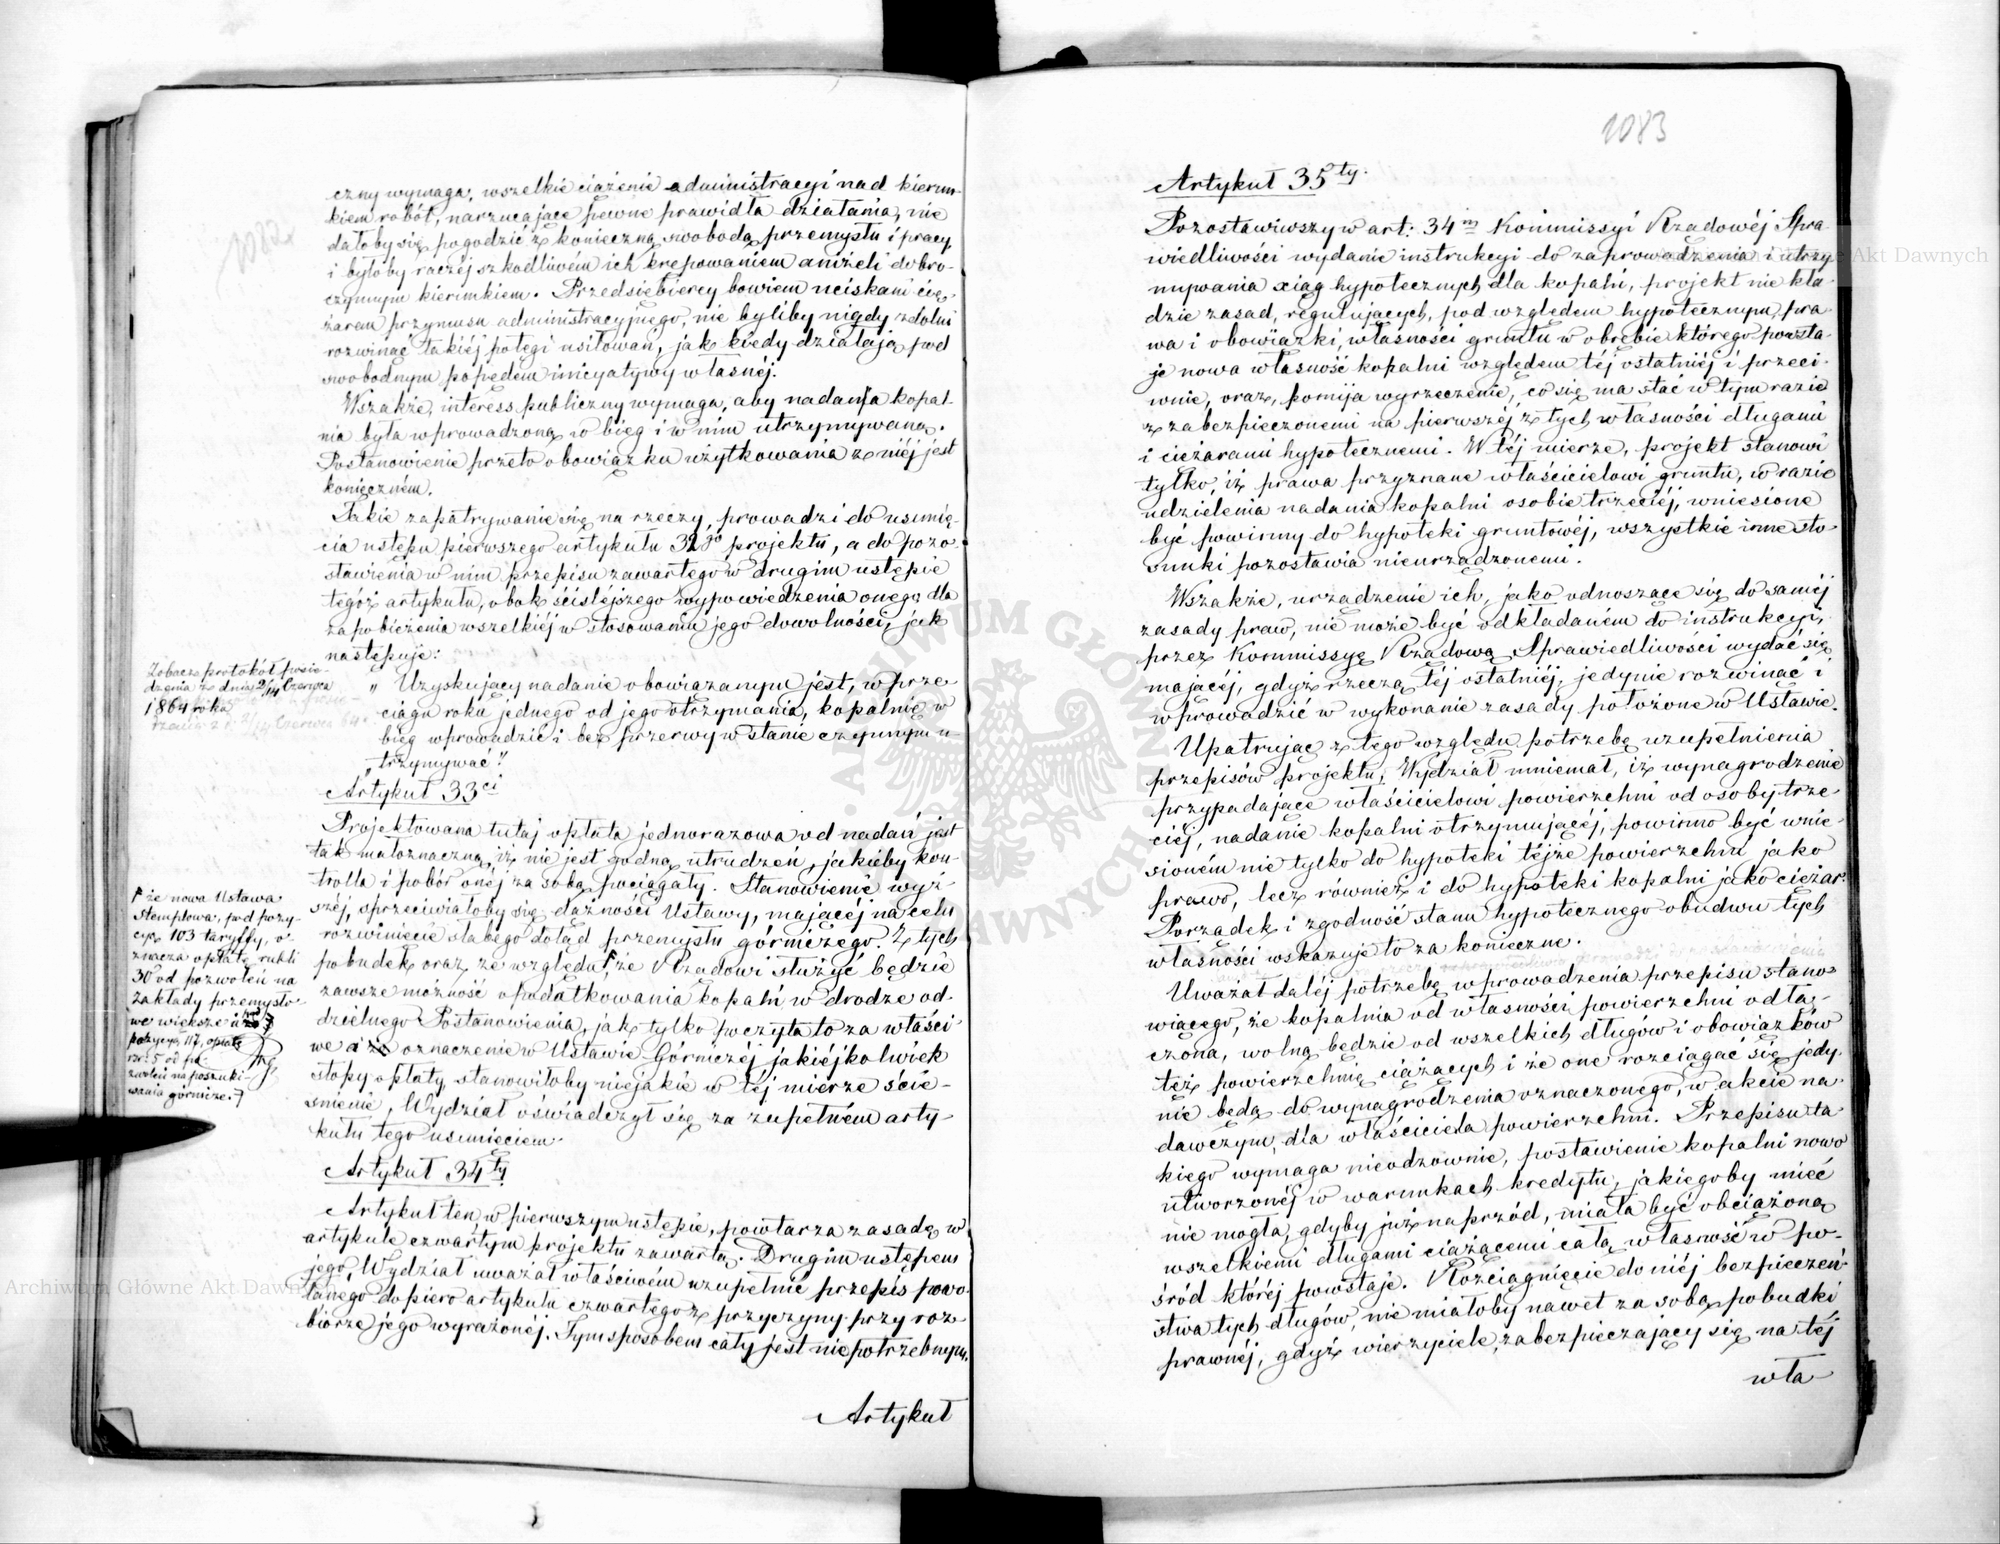 1082
czny wymaga, wszelkie ciążenie administracyi nad kierun-
kiem robót, narzucające pewne prawidła działania, nie
dałoby się pogodzić z konieczną swobodą przemysłu i pracy,
i byłoby raczéj szkodliwém ich krępowaniem aniżeli dobro-
czynnym kierunkiem. Przedsiębiercy bowiem uciskani cię-
żarem przymusu administracyjnego, nie byliby nigdy zdolni
rozwinąć takiéj potęgi usiłowań, jak kiedy działają pod
swobodnym popędem inicyatywy własnéj.
Wszakże, interess publiczny wymaga, aby nadana kopal-
nia była wprowadzoną w bieg i w nim utrzymywaną.
Postanowienie przeto obowiązku użytkowania z niéj jest
konieczném.
Takie zapatrywanie się na rzeczy, prowadzi do usunię-
cia ustępu pierwszego artykułu 32go projektu, a do pozo-
stawienia w nim przepisu zawartego w drugim ustępie
tegoż artykułu, obok ściślejszego wypowiedzenia onego dla
zapobieżenia wszelkiéj w stosowaniu jego dowolności, jak
następuje:
Zobacz protokół posie-
dzenia z dnia 2/14 Czerwca
1864 roku
„Uzyskujący nadanie obowiązanym jest, w prze-
ciągu roku jednego od jego otrzymania, kopalnię w
bieg wprowadzić i bez przerwy w stanie czynnym u-
„trzymywać."
Artykuł 33ci
Projektowana tutaj opłata jednorazowa od nadań jest
tak małoznaczną, iż nie jest godną utrudzeń, jakieby kon-
trolla i pobór onéj za sobą pociągały. Stanowienie wyż-
széj, sprzeciwiałoby się dążności Ustawy, mającéj na celu
rozwinięcie słabego dotąd przemysłu górniczego. Z tych
pobudek oraz ze względu, że Rządowi służyć będzie
zawsze możność opodatkowania kopalń w drodze od-
dzielnego Postanowienia, jak tylko poczyta to za właści-
we a oznaczenie w Ustawie Górniczéj jakiéjkolwiek
stopy opłaty, stanowiłoby niejakie w téj mierze ście-
śnienie, Wydział oświadczył się za zupełném arty-
kułu tego usunięciem.
że nowa Ustawa
stemplowa, pod pozy-
cyą 103 taryffy, o-
znacza opłatę rubli
30 od pozwoleń na
zakłady przemysło-
we większe a
pozycya 117, opłatę
rsr: 5 od po-
zwoleń na poszuki-
wania górnicze.
Artykuł 34ty
Artykuł ten w pierwszym ustępie, powtarza zasadę w
artykule czwartym projektu zawartą. Drugim ustępem
jego, Wydział uważał właściwém uzupełnić przepis powo-
łanego dopiero artykułu czwartego z przyczyny przy roz-
biorze jego wyrażonéj. Tym sposobem cały jest niepotrzebnym.
Artykuł
1083
Artykuł 35ty.
Pozostawiwszy w art: 34m Kommissyi Rządowéj Spra-
wiedliwości wydanie instrukcyi do zaprowadzenia i utrzy-
mywania xiąg hypotecznych dla kopalni, projekt nie kła-
dzie zasad, regulujących, pod względem hypotecznym, pra-
wa i obowiązki, własności gruntu w obrębie którego powsta-
je nowa własność kopalni względem téj ostatniéj i przeci-
wnie, oraz, pomija wyrzeczenie, co się ma stać w tym razie
z zabezpieczonemi na pierwszéj z tych własności długami
i ciężarami hypotecznemi. W téj mierze, projekt stanowi
tylko, iż prawa przyznane właścicielowi gruntu, w razie
udzielenia nadania kopalni osobie trzeciéj, wniesione
być powinny do hypoteki gruntowéj, wszystkie inne sto-
sunki pozostawia nieurządzonemi.
Wszakże, urządzenie ich, jako odnoszące się do saméj
zasady praw, nie może być odkładaném do instrukcyi,
przez Kommissyę Rządową Sprawiedliwości wydać się
mającéj, gdyż rzeczą téj ostatniéj, jedynie rozwinąć i
wprowadzić w wykonanie zasady położone w Ustawie.
Upatrując z tego względu potrzebę uzupełnienia
przepisów projektu, Wydział mniemał, iż wynagrodzenie
przypadające właścicielowi powierzchni od osoby trze-
ciéj, nadanie kopalni otrzymującéj, powinno być wnie-
sioném nie tylko do hypoteki téjże powierzchni jako
prawo, lecz również i do hypoteki kopalni jako ciężar.
Porządek i zgodność stanu hypotecznego obudwu tych
własności wskazuje to za konieczne.
Uważał daléj potrzebę wprowadzenia przepisu stano-
wiącego, że kopalnia od własności powierzchni odłą-
czona, wolną będzie od wszelkich długów i obowiązków
téż powierzchnię ciążących i że one rozciągać się jedy-
nie będą do wynagrodzenia oznaczonego, w akcie na-
dawczym, dla właściciela powierzchni. Przepisu ta-
kiego wymaga nieodzownie, postawienie kopalni nowo
utworzonéj w warunkach kredytu, jakiegoby mieć
nie mogła, gdyby już naprzód, miała być obciążoną
wszelkiemi długami ciążącemi całą własność w po-
śród któréj powstaje. Rozciągnięcie do niéj bezpieczeń-
stwa tych długów, nie miałoby nawet za sobą pobudki
prawnéj, gdyż wierzyciele, zabezpieczający się na téj
wła